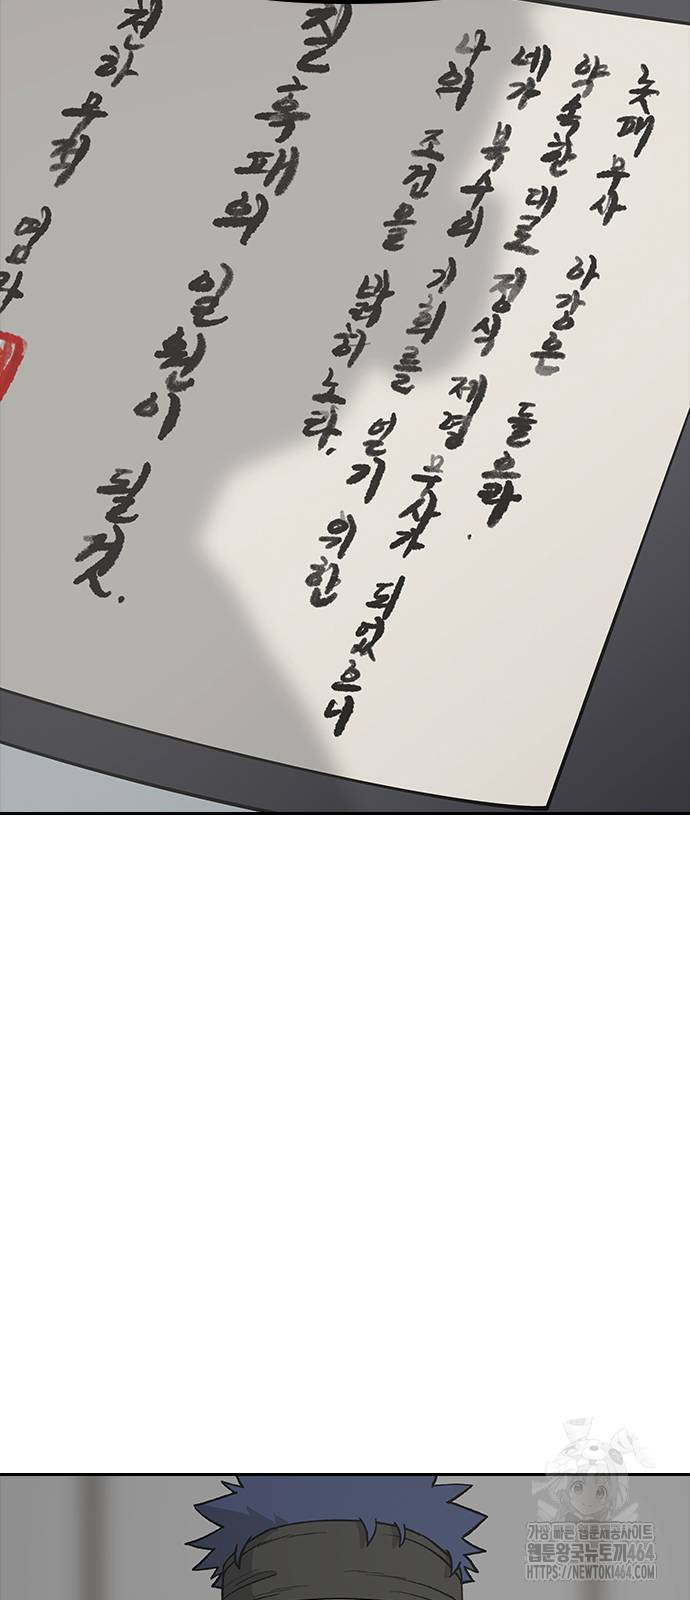 놋패 무사 아강은 들으라.
약속한 대로 정식 제염 무사가 되었으니
네가 복수의 기회를 얻기 위한
나의 조건을 밝히노라.
칠흑패의 일원이 될 것.
천하무적 염라
가장 빠른 웹툰제공사이트
웹툰왕국뉴토끼464
HTTPS://NEWTOKI464.COM